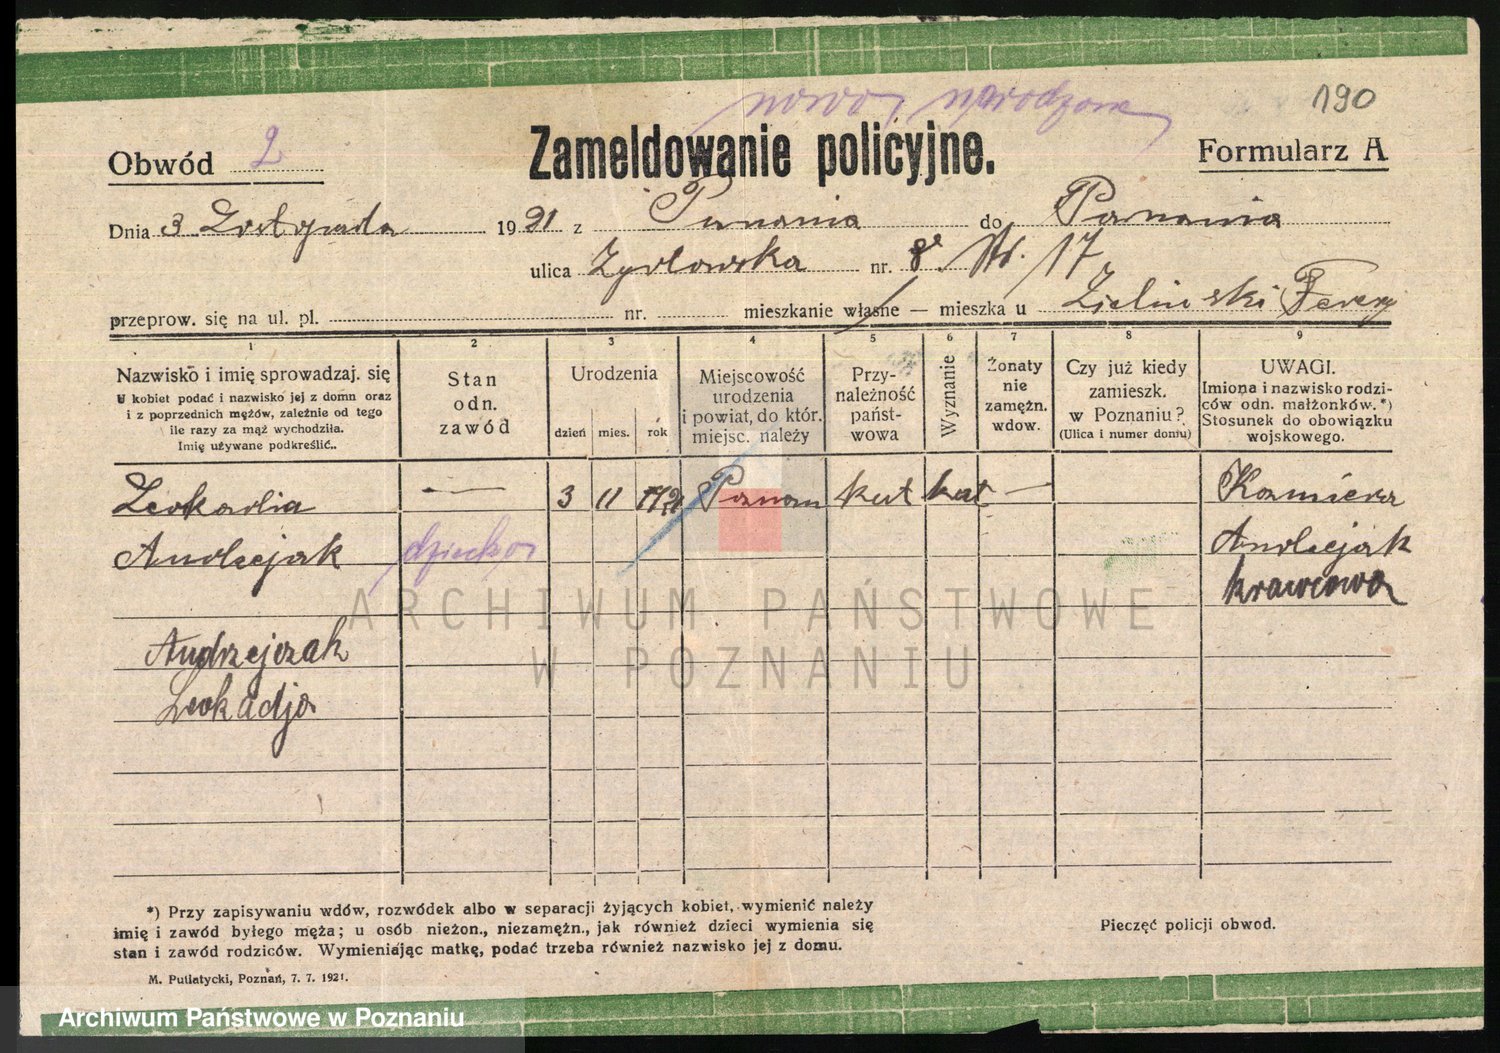 nowo narodzone
190
Obwód 2
Zameldowanie policyjne.
Formularz A
Dnia 3 Listopada 1921 z Poznania do Poznania
ulica Żydowska nr. 8 17
przeprow. się na ul. pl. nr. mieszkanie własne — mieszka u Zieliński
1 2 3 4 5 6 7 8 9
Nazwisko i imię sprowadzaj. się
U kobiet podać i nazwisko jej z domn oraz
i z poprzednich mężów, zależnie od tego
ile razy za mąż wychodziła.
Imię używane podkreślić..
Stan
odn.
zawód
Urodzenia
dzień mies. rok
Miejscowość
urodzenia
i powiat, do któr.
miejsc. należy
Przy-
należność
państ-
wowa
Wyznanie
Żonaty
nie
zamężn.
wdow.
Czy już kiedy
zamieszk.
w Poznaniu?
(Ulica i numer doniu)
UWAGI.
Imiona i nazwisko rodzi-
ców odn. małżonków.*)
Stosunek do obowiązku
wojskowego.
Leokadia — 3 11 1921 Poznan kat kat — Kazmiera
Andzejak dziecko Andzejak
krawcowa
Andrzejczak
Leokadja
ARCHIWUM PAŃSTWOWE
W POZNANIU
*) Przy zapisywaniu wdów, rozwódek albo w separacji żyjących kobiet, wymienić należy
imię i zawód byłego męża; u osób nieżon., niezamężn., jak również dzieci wymienia się
stan i zawód rodziców. Wymieniając matkę, podać trzeba również nazwisko jej z domu.
Pieczęć policji obwod.
M. Putiatycki, Poznań, 7. 7. 1921.
Archiwum Państwowe w Poznaniu